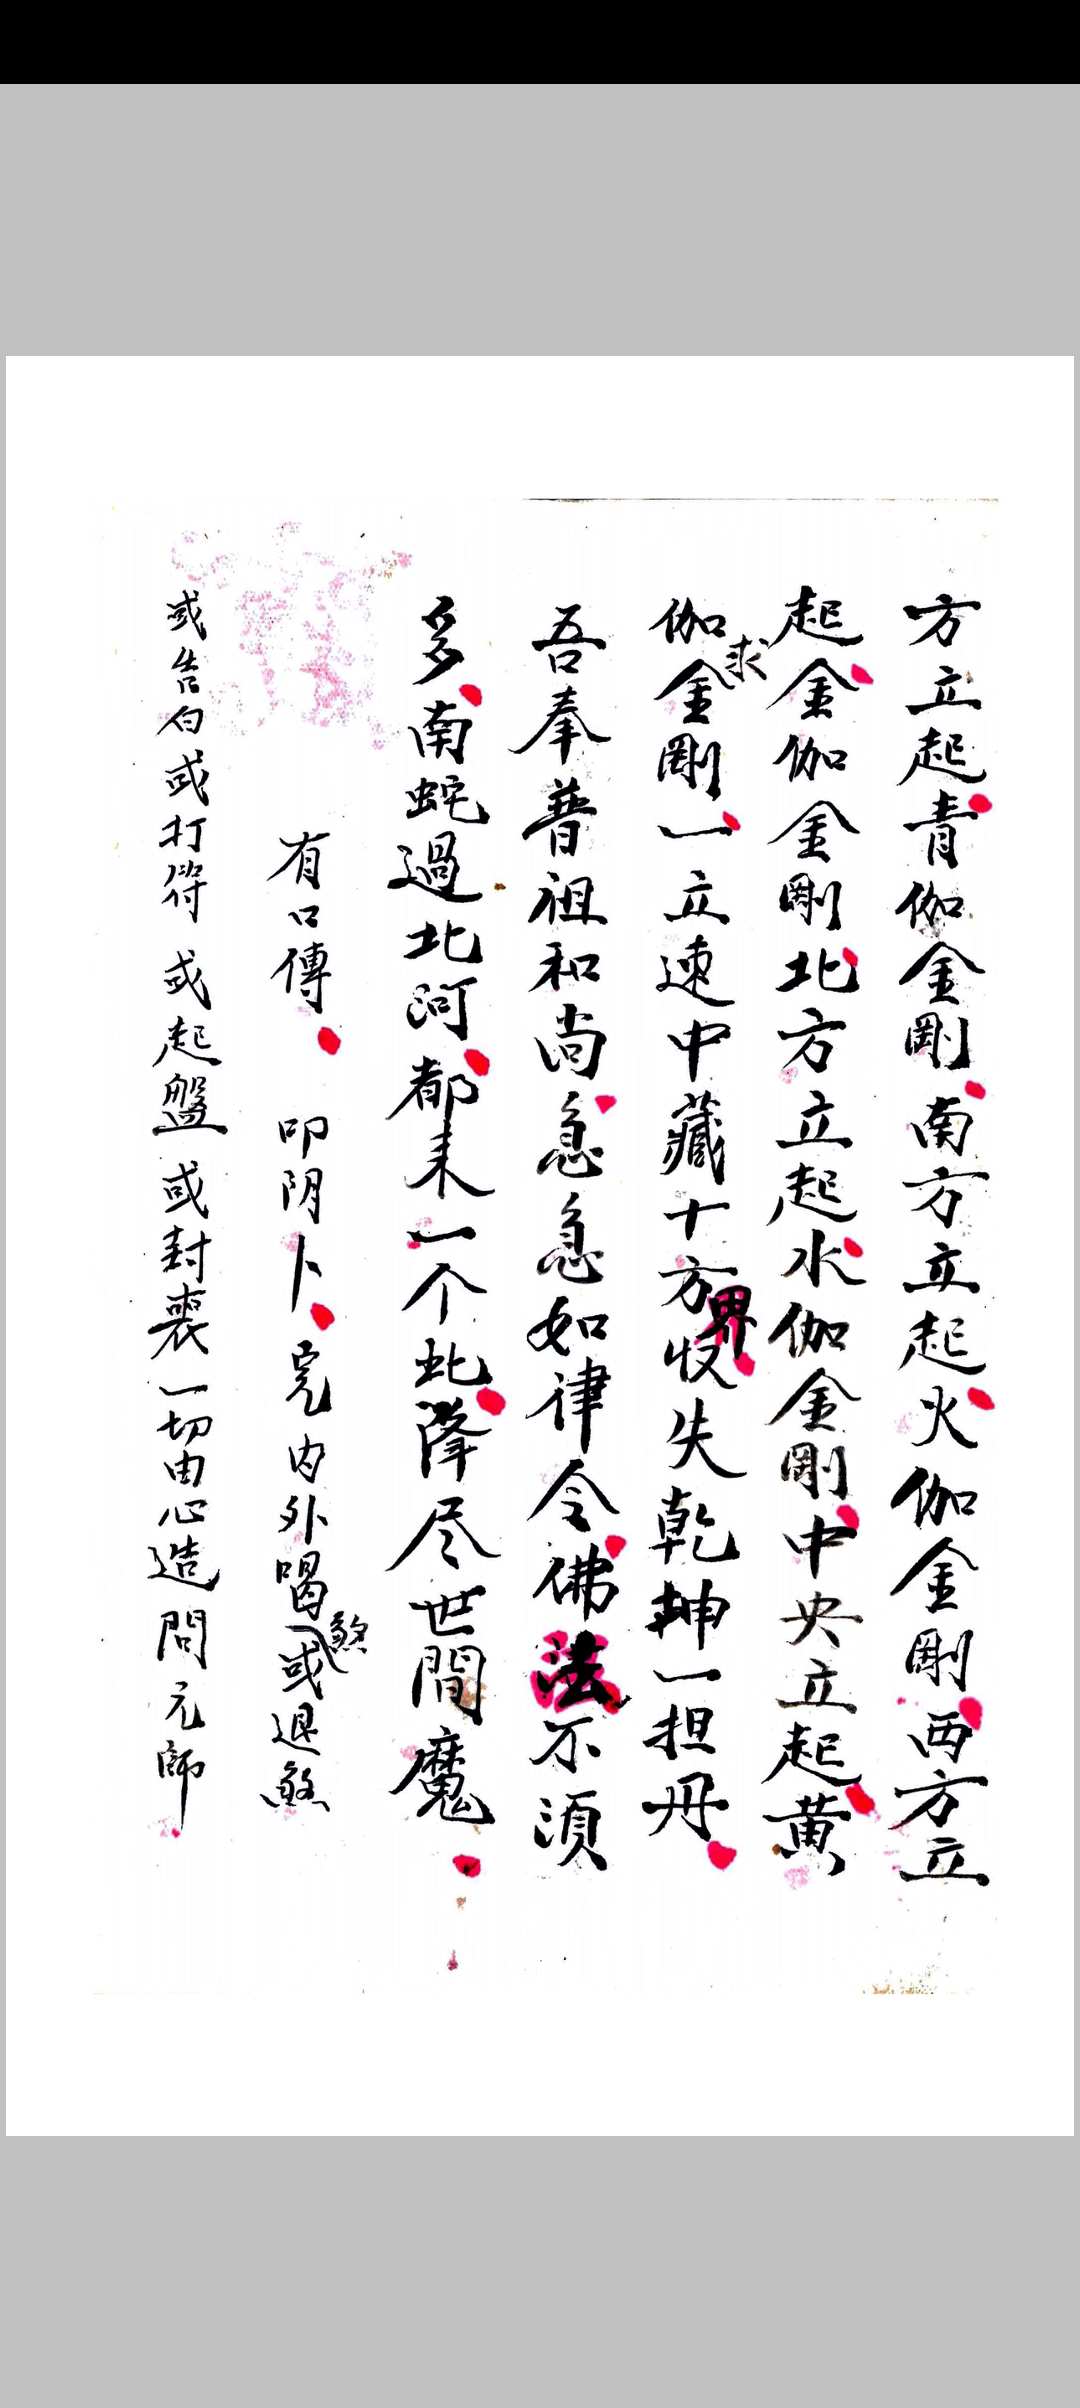 方立起青伽金剛南方立起火伽金剛西方立
起金伽金剛北方立起水伽金剛中央立起黄
伽求金剛一立速中藏十方界收失乾坤一担丹
吾奉普祖和尚急急如律令佛法不須
多南蛇過北河都来一个此降尽世間魔
有口傳 叩阴卜完内外喝煞或退煞
或告白或打符或起盤或封喪一切由心造問元師